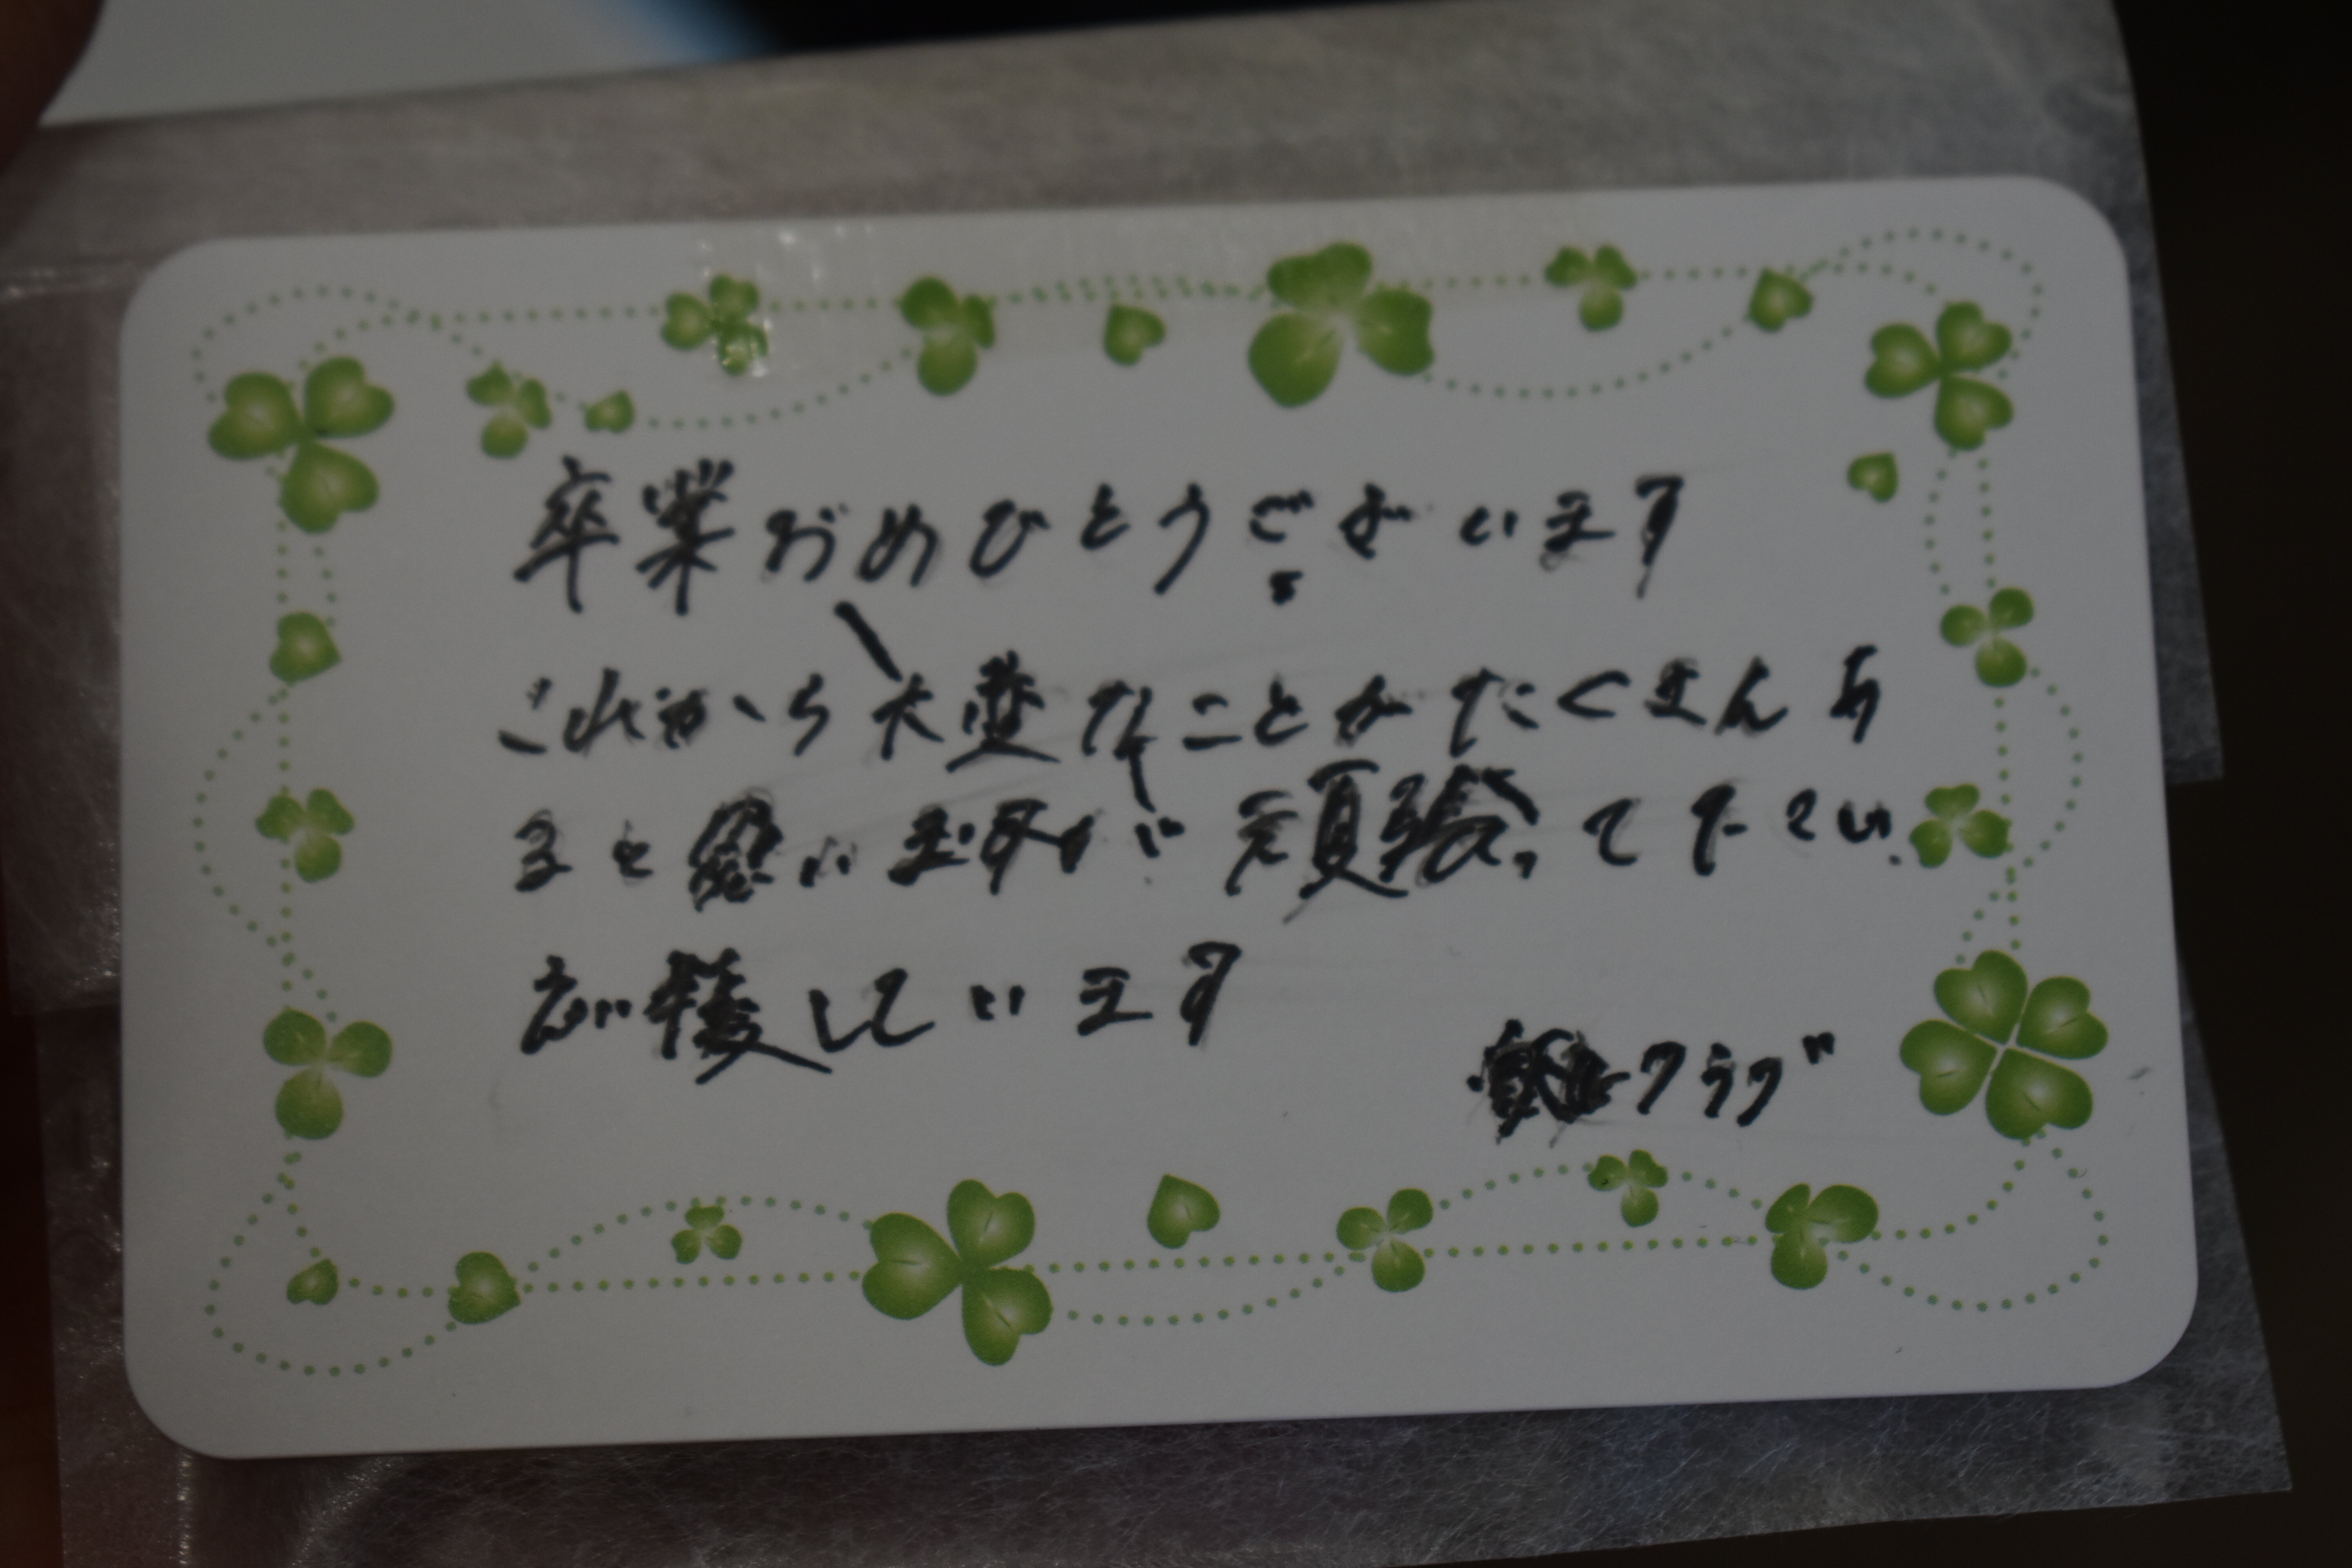 卒業おめでとうございます
これから大変なことがたくさんあ
ると思いますが頑張って下さい。
応援しています
クラブ